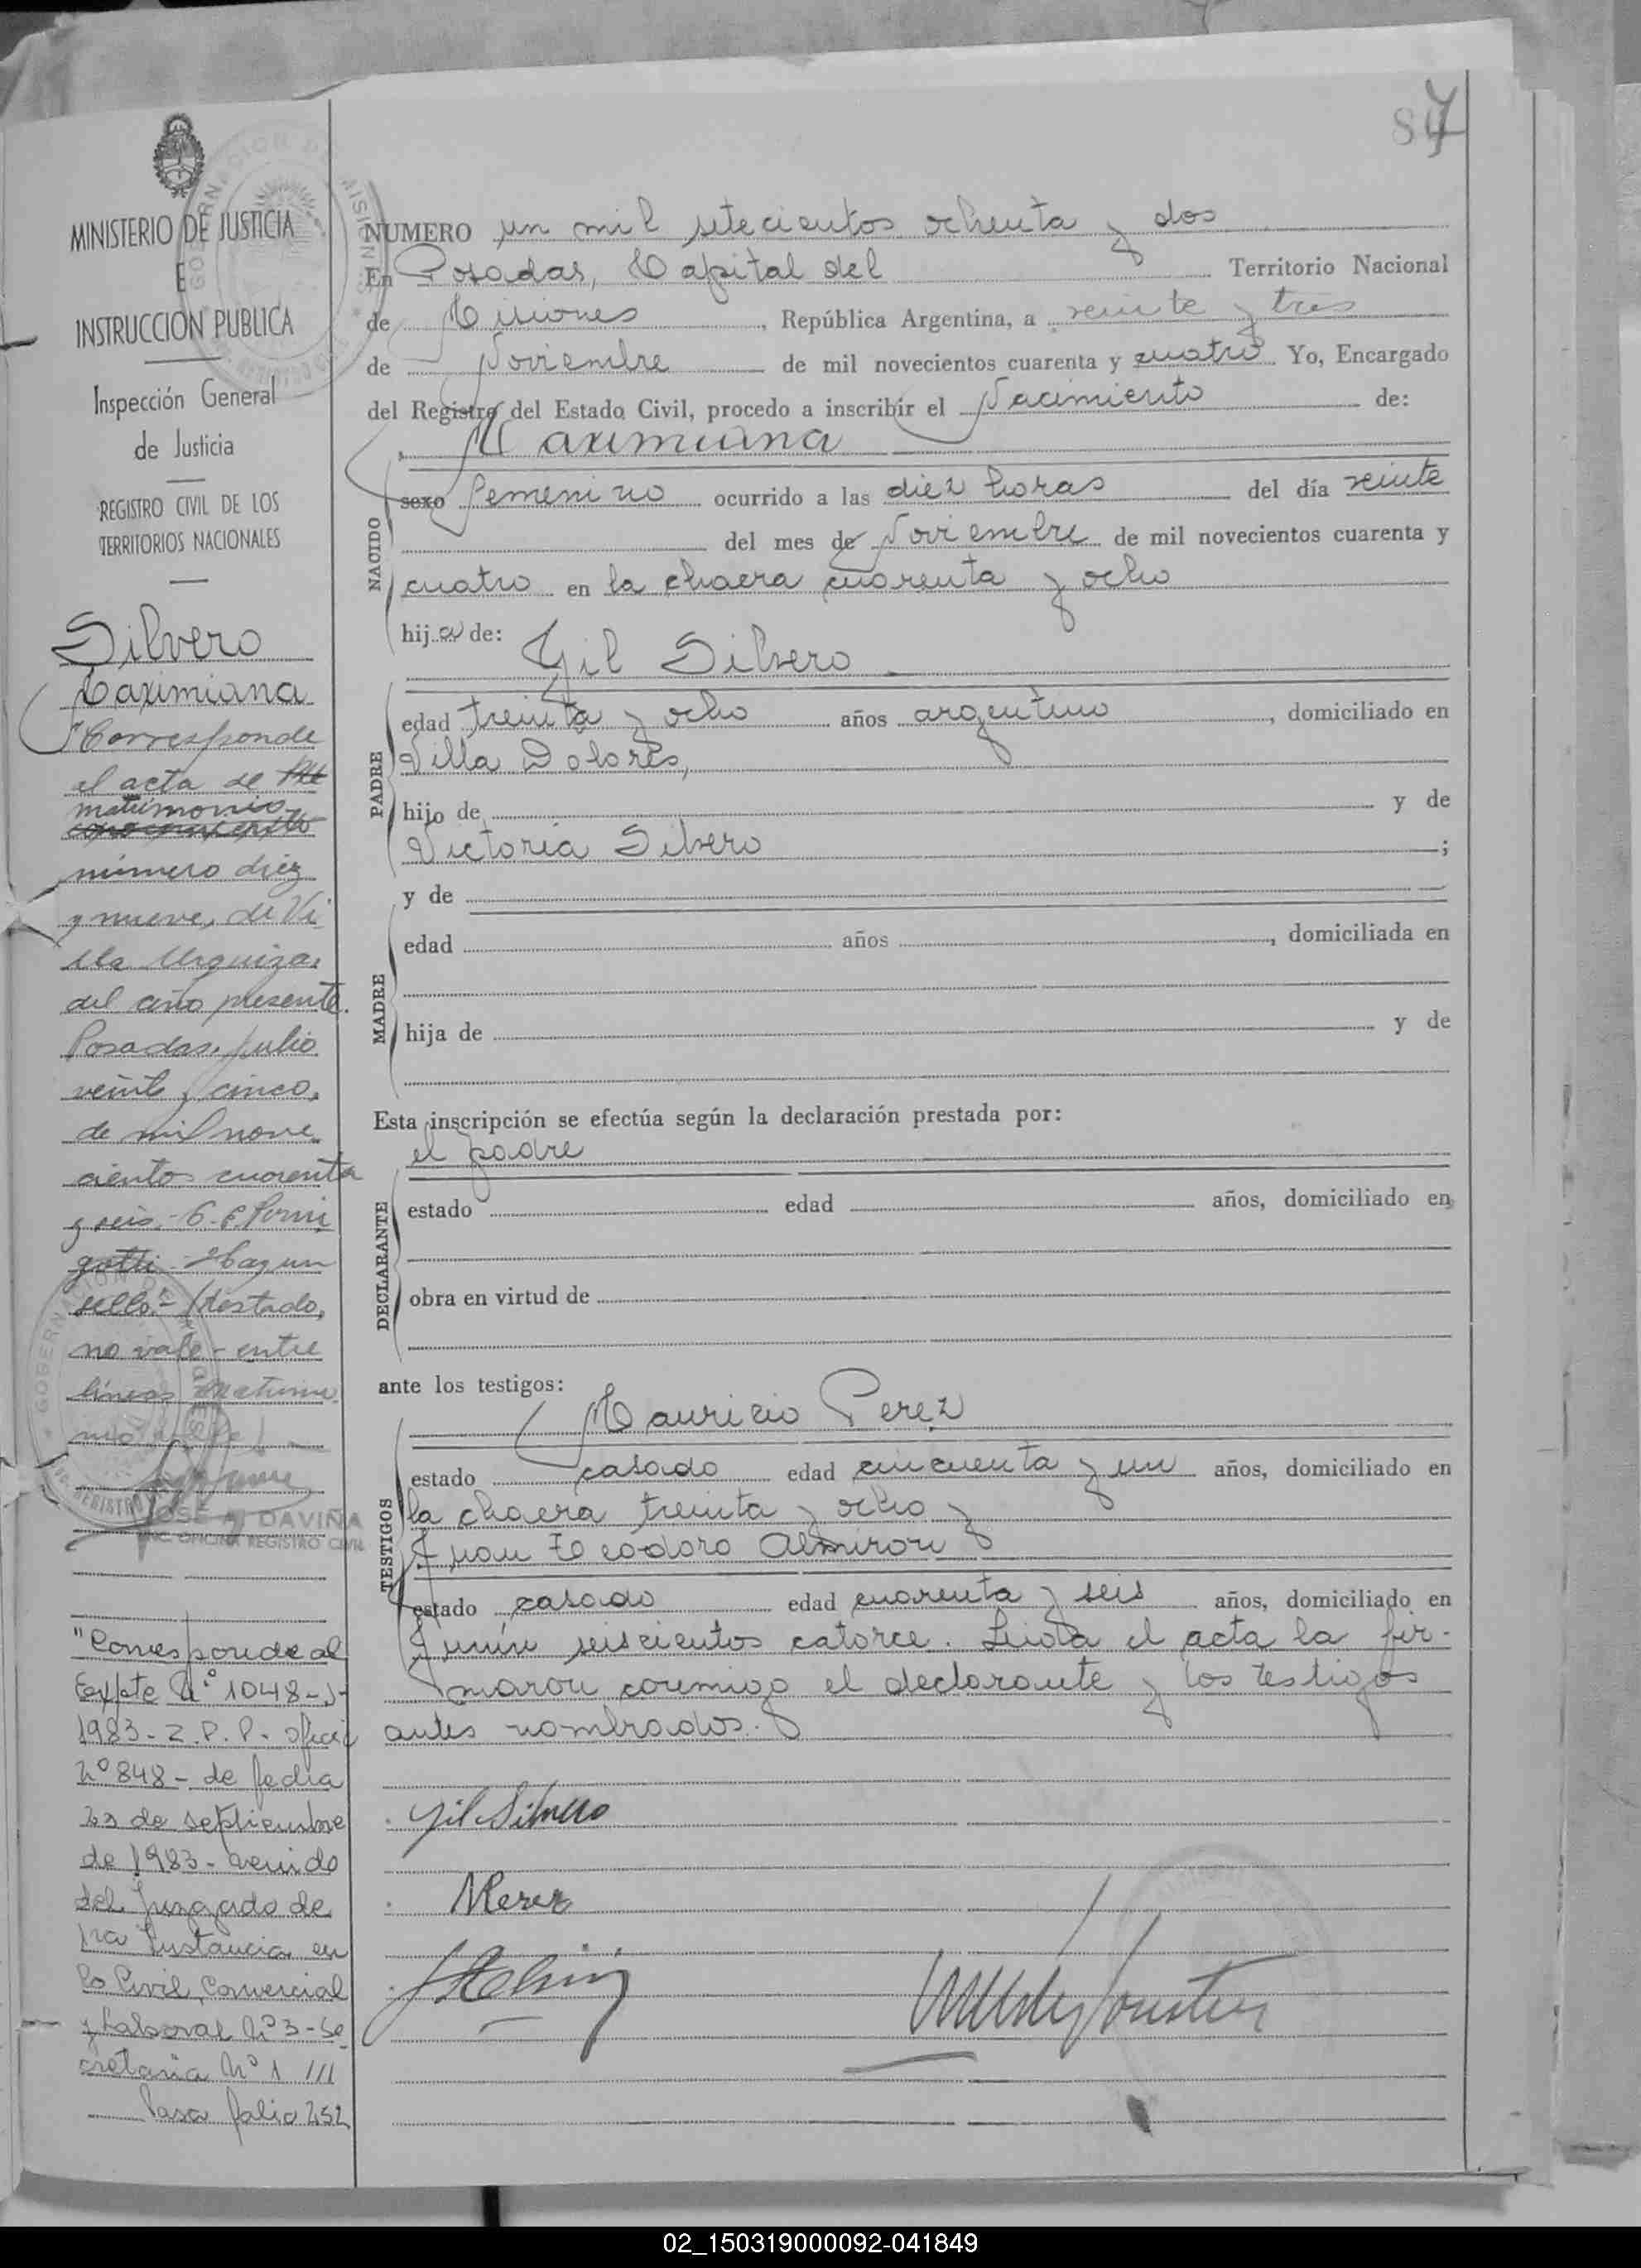 87
MINISTERIO DE JUSTICIA
E
INSTRUCCION PUBLICA
Inspección General
de Justicia
REGISTRO CIVIL DE LOS
TERRITORIOS NACIONALES
Silvero
Maximiana
Corresponde
el acta de
matrimonio
número diez
y nueve, de Vi
lla Urquiza,
del año presente.
Posadas, julio
veinte y cinco,
de mil nove
cientos cuarenta
y seis.-
Hay un
sello.- (testado,
no vale - entre
líneas
JOSE A. DAVIÑA
ENC. OFICINA REGISTRO CIVIL
"Corresponde al
Expte Nº 1048-J-
1983-Z.P.P.- oficio
Nº 848- de fecha
23 de septiembre
de 1983- venido
del Juzgado de
1ra Instancia en
lo Civil, Comercial
y Laboral Nº 3- Se
cretaria Nº 1 ///
Pasa folio 252
NUMERO un mil setecientos ochenta y dos
En Posadas, Capital del Territorio Nacional
de Misiones, República Argentina, a veinte y tres
de Noviembre de mil novecientos cuarenta y cuatro Yo, Encargado
del Registro del Estado Civil, procedo a inscribir el Nacimiento de:
Maximiana
NACIDO
sexo femenino ocurrido a las diez horas del día veinte
del mes de Noviembre de mil novecientos cuarenta y
cuatro en la chacra cuarenta y ocho
hija de: Gil Silvero
PADRE
edad treinta y ocho años argentino, domiciliado en
Villa Dolores,
hijo de y de
Victoria Silvero ;
y de
MADRE
edad años , domiciliada en
hija de y de
Esta inscripción se efectúa según la declaración prestada por:
el padre
DECLARANTE
estado edad años, domiciliado en
obra en virtud de
ante los testigos:
Mauricio Perez
TESTIGOS
estado casado edad cincuenta y un años, domiciliado en
la chacra treinta y ocho y
Juan Teodoro Almiron
estado casado edad cuarenta y seis años, domiciliado en
Junín seiscientos catorce. Leida el acta la fir-
maron conmigo el declarante y los testigos
antes nombrados.
Gil Silvero
MPerez
02_150319000092-041849